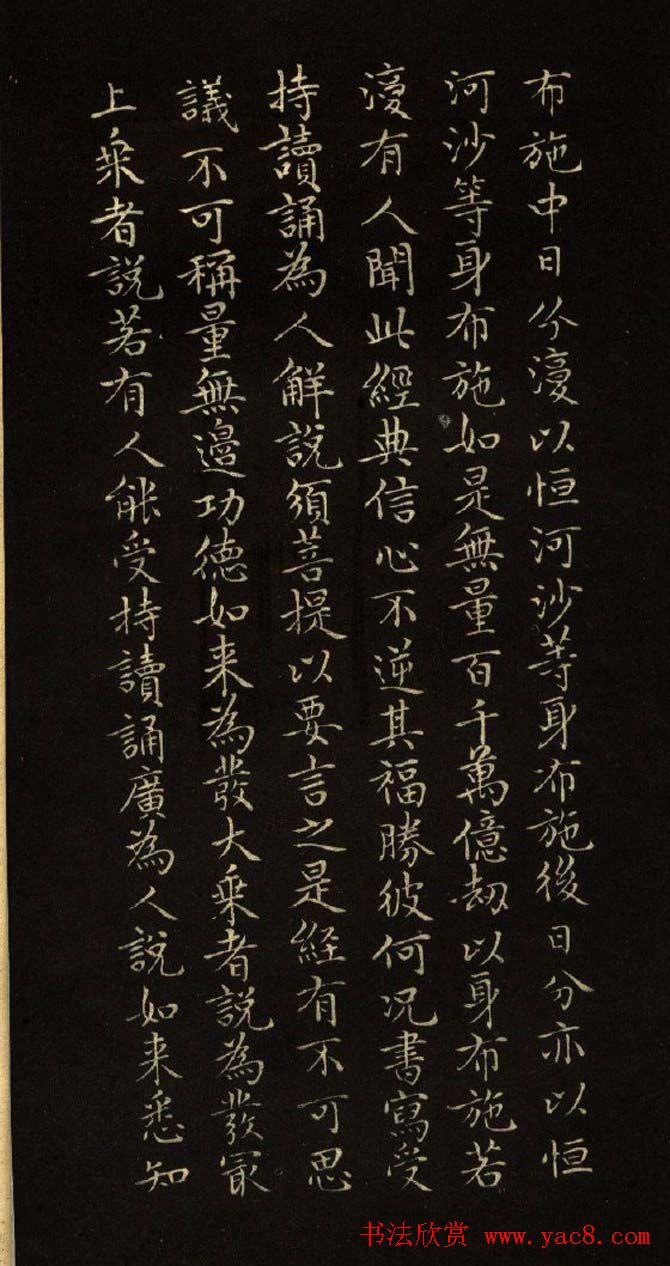 布施中日分復以恒河沙等身布施後日分亦以恒
河沙等身布施如是無量百千萬億劫以身布施若
復有人聞此經典信心不逆其福勝彼何况書寫受
持讀誦為人解說須菩提以要言之是経有不可思
議不可稱量無邊功德如来為發大乗者說為發冣
上乗者說若有人能受持讀誦廣為人說如来悉知
书法欣赏 www.yac8.com